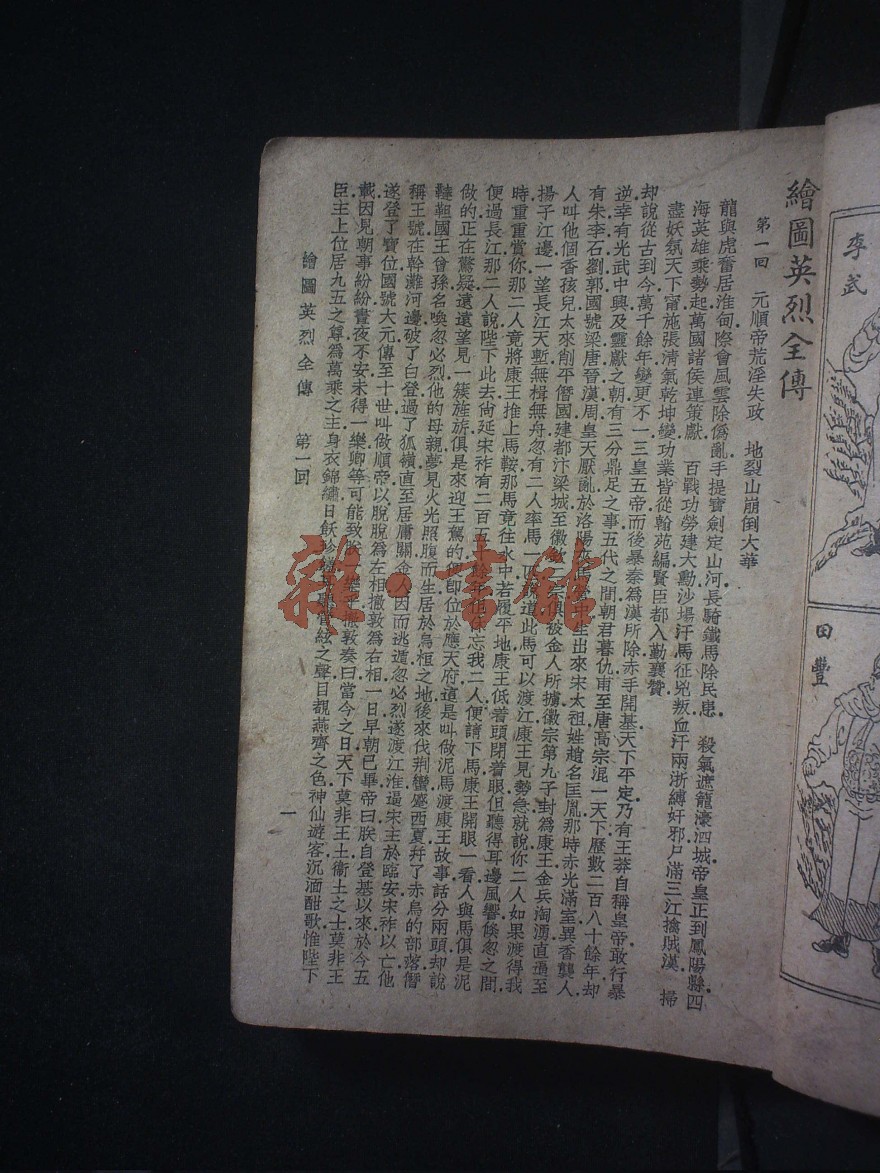 繪圖英烈全傳
第一回 元順帝荒淫失政 地裂山崩倒大華
龍與虎奮居淮甸際會風雲除僞亂手提寶劍定山河長騎鐵馬除民患 殺氣遮籠濠泗城帝皇正到鳳陽縣四
海英雄乘勢起萬國諸侯連策獻 百戰功勞建大勳沙場汗馬征兇叛血汗兩浙縛奸邪尸滿三江擒賊漢 掃
盡妖氛天下甯施張清氣乾坤變功業皆從翰苑編賢臣都入勳襄贊
却說從古到今萬千餘年變更不一三皇五帝而後暴秦爲漢所除赤手開基天下平定乃有王莽自稱皇帝敢行暴
逆幸有光武中興及靈獻之朝有三分鼎足之事五代之間朝君暮仇甫至唐高宗混一天下歷數二百八十餘年却
有朱李石劉郭國號梁唐晉漢周皇天厭亂於洛陽夾馬營中生出來宋太祖姓趙名匡胤那時赤光滿室異香襲人
人叫他個香孩兒太來削平僭國建都汴梁城至徽欽二宗俱被金人所擄徽宗第九子封爲康王金兵洶湧直逼至
揚子江邊一望長江天塹無楫無舟忽有二人率馬一匹道此馬可以渡江康王見勢急就說你二人如果渡得我
時重重賞你那二人竟將康王推上馬鞍那馬竟往水中若履平地康王低着頭閉着眼但聽得耳邊風響倏忽之間
便過長江那二人說陛下此去尙延宋祚有二百五十餘年但休忘我二人便請下馬康王開眼一看人與馬俱是泥
做的正在驚疑遠遠望見一簇旌旂俱是來迎王駕的便即位於應天府這是叫做泥馬渡康王故事話分兩頭却說
韃靼國王曾孫名喚忽必烈他的母親夢見火光照腹而生居於烏桓之地後來伐荆蠻蹙西夏幷了赤烏的部落僭
稱王號在幹灘河邊破了白登過了狐嶺直至居庸關金人因而逃遁忽必烈遂渡江淮逼宋主於臨安宋祚以亡他
遂登了寶位國號大元傳至十世叫做順帝以脫脫爲左相撒敦爲右相一日早朝已畢帝曰朕自登基以來於今五
載因見朝事紛紛晝夜不安未得一樂卿等可能致朕一樂乎撒敦奏曰當今之日天下莫非王土衞土之士莫非王
臣主上位居九五之尊爲萬乘之主身衣錦繡日飫珍饈耳聽管絃之聲目覩燕齊之色神仙遊客沉湎酣歌惟陛下
繪圖英烈全傳 第一回
一
李武
田豐
雜·書館